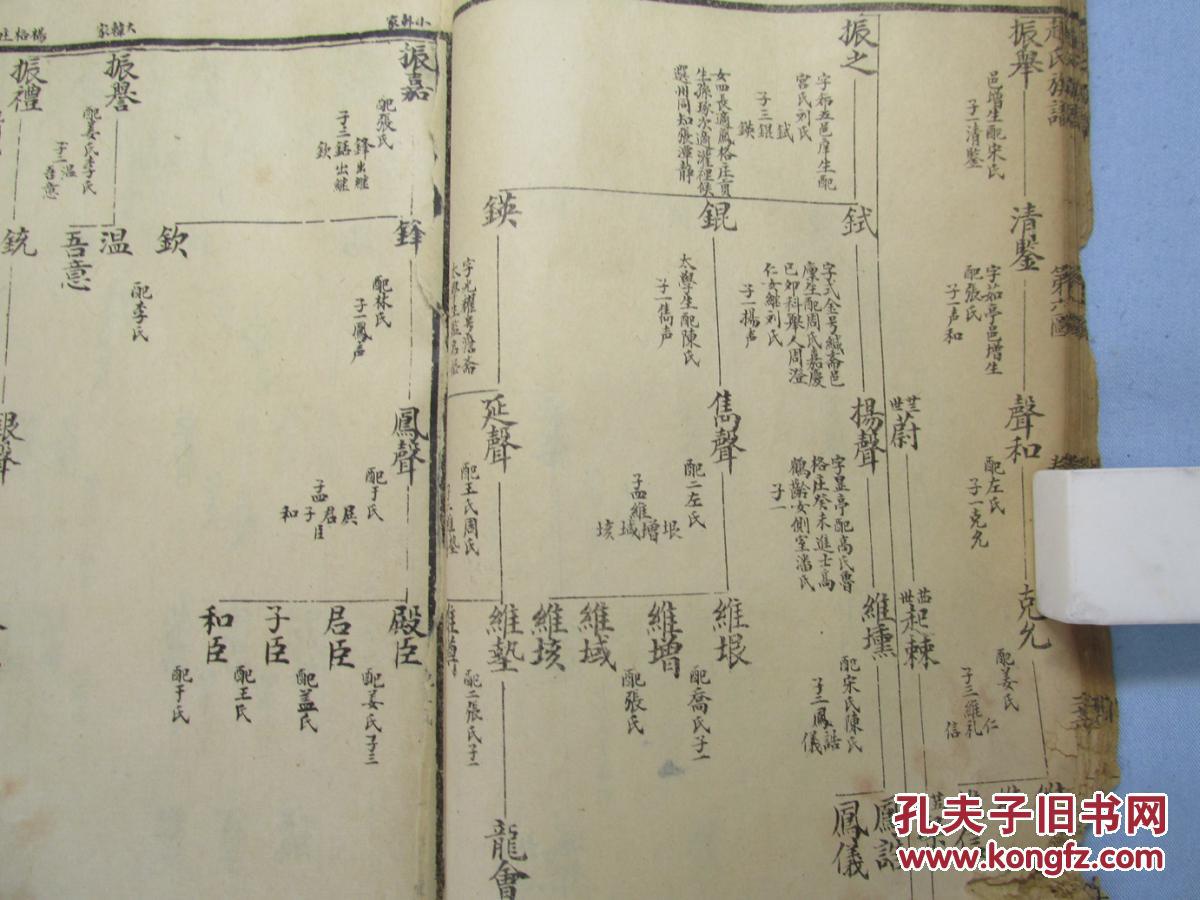 趙氏族譜
第六
振舉
邑增生配宋氏
子一清鑒
清鑒
字茹亭邑增生
配張氏
子一声和
聲和
配左氏
子一克允
克允
配姜氏
子三維礼
仁
信
世蔚
世起棘
振之
字布五邑庠生配
宮氏刘氏
子三錕
鉽
鍈
女四長適鳳格庄貢
生孫珍次適灌裡候
選州同知張澤靜
鉽
字式金号繩斋邑
廪生配周氏嘉慶
己卯科舉人周澄
仁女継刘氏
子一揚声
揚聲
字显亭配高氏魯
格庄癸未進士高
鶴齡女側室潘氏
子一
維壎
配宋氏陳氏
子二鳳誥
儀
鳳誥
鳳儀
錕
太學生配陳氏
子一雋声
雋聲
配二左氏
子孟維
垠增域垓
維垠
配喬氏子一
維增
配張氏
維域
維垓
鍈
字光耀号澹斋
延聲
配王氏周氏
維墊
配二張氏子一
龍會
小軒家
振嘉
配張氏
子三鋸出継
鋒出継
欽
鋒
配林氏
子一鳳声
鳳聲
配于氏
子孟
殿君子和
臣
殿臣
配姜氏子三
君臣
配盖氏
子臣
配王氏
和臣
配于氏
欽
配李氏
大韓家
振譽
配姜氏李氏
子二温
吾意
温
吾意
楊格庄
振禮
銃
銀聲
孔夫子旧书网
www.kongfz.com